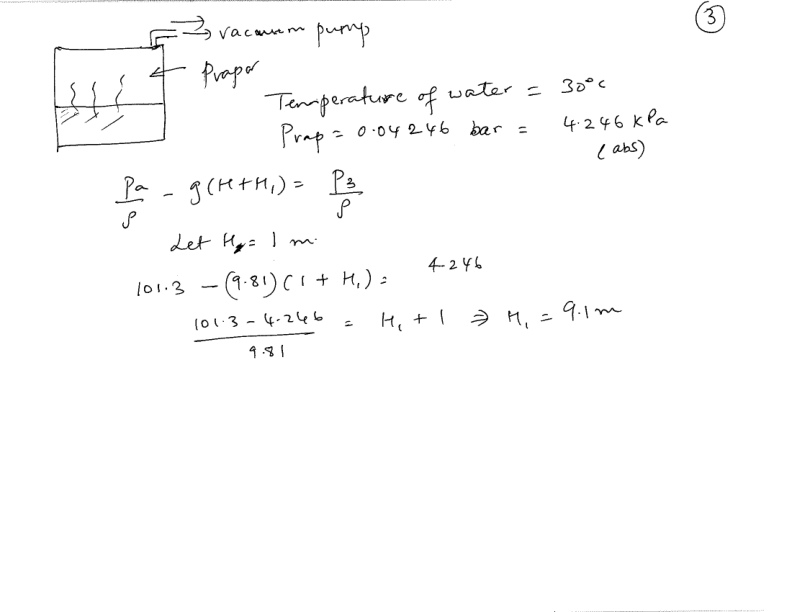 ③
vacuum pump
Pvapor
Temperature of water = 30°C
Pvap = 0.04246 bar = 4.246 kPa
(abs)
Pa/ρ - g(H+H₁) = P₃/ρ
Let H = 1 m.
101.3 - (9.81)(1 + H₁) = 4.246
(101.3 - 4.246)/9.81 = H₁ + 1 ⇒ H₁ = 9.1m